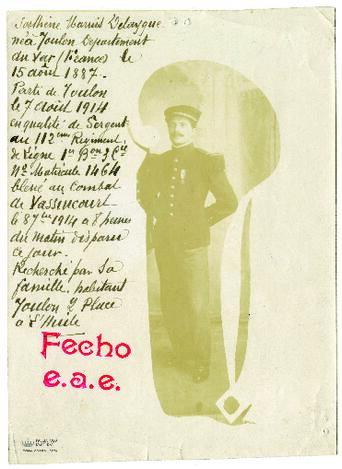 né à Toulon Département
du Var (France) le
15 août 1887.
Parti de Toulon
le 7 août 1914
en qualité de Sergent
au 112ème Régiment
de Ligne 1er Bon 3 Cie
No Matricule 1464
blessé au Combat
de Vassincourt
le 8 7bre 1914 à 8 heures
du matin disparu
ce jour.
Recherché par Sa
famille, habitant
Toulon 2 Place
à l'Huile
Fecho
e.a.e.